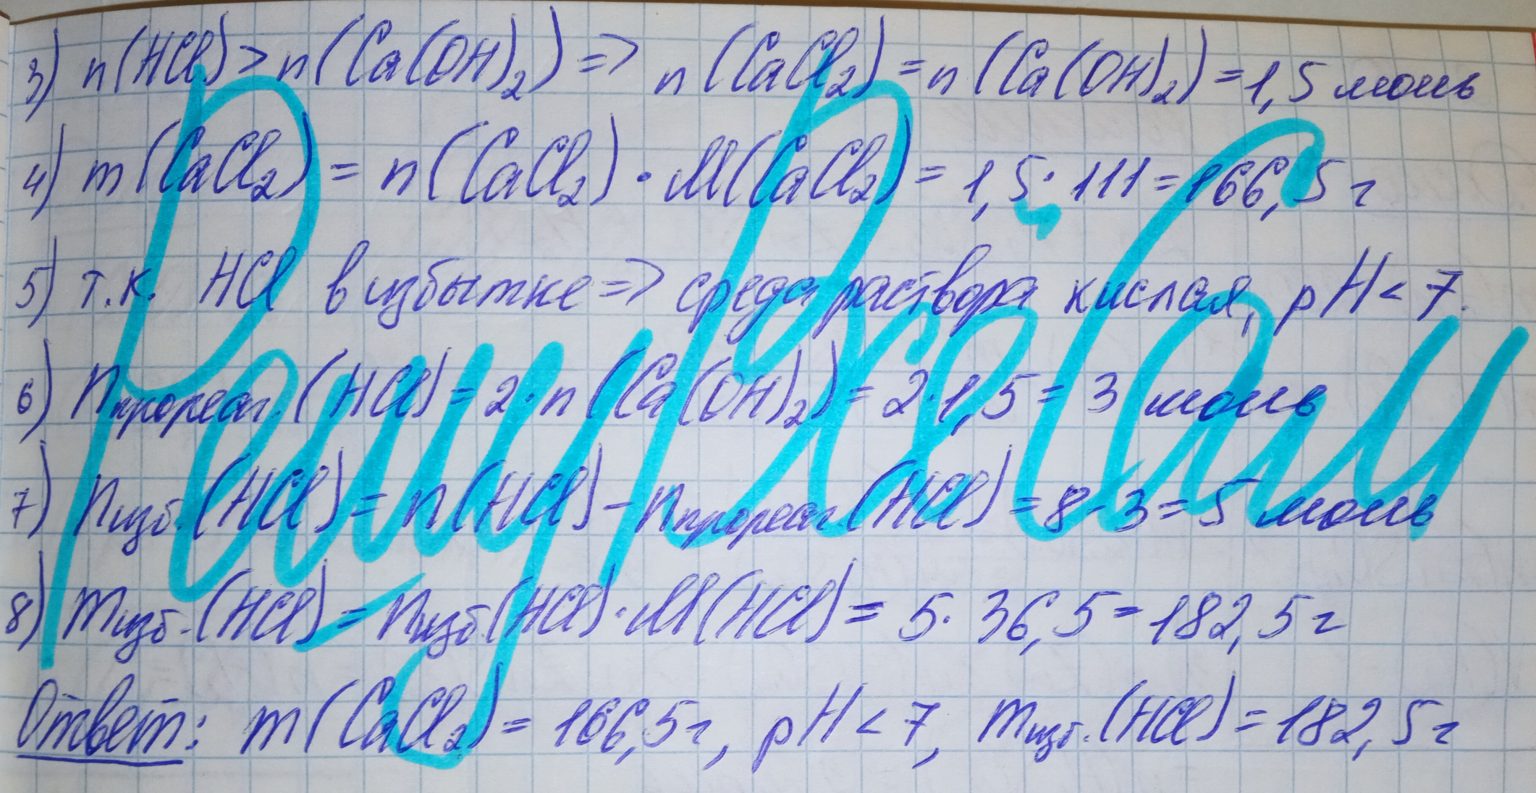 3) n(HCl) > n(Ca(OH)₂) => n(CaCl₂) = n(Ca(OH)₂) = 1,5 моль
4) m(CaCl₂) = n(CaCl₂) · M(CaCl₂) = 1,5 · 111 = 166,5 г
5) т.к. HCl в избытке => среда раствора кислая, pH < 7.
6) nпрореаг.(HCl) = 2 · n(Ca(OH)₂) = 2 · 1,5 = 3 моль
7) nизб.(HCl) = n(HCl) - nпрореаг.(HCl) = 8 - 3 = 5 моль
8) mизб.(HCl) = nизб.(HCl) · M(HCl) = 5 · 36,5 = 182,5 г
Ответ: m(CaCl₂) = 166,5 г, pH < 7, mизб.(HCl) = 182,5 г